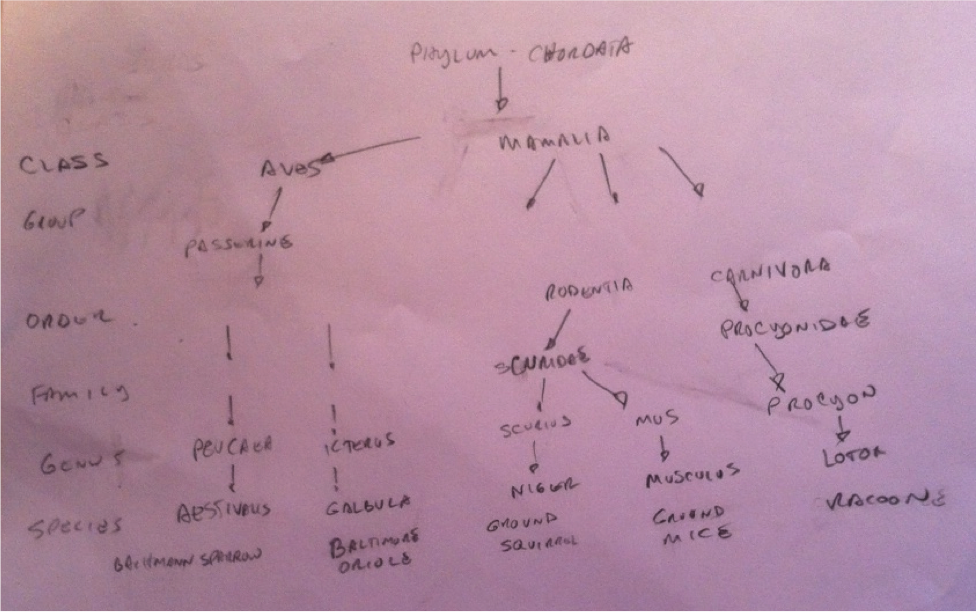 PHYLUM - CHORDATA
MAMALIA
CLASS AVES
GROUP
PASSURINE
CARNIVORA
RODENTIA
ORDUR
PROCYONIDAE
FAMILY
PROCYON
PEUCAEA ICTERUS SCURIUS MUS
GENUS LOTOR
NIGER MUSCULUS
SPECIES AESTIVALIS GALBULA RACOONE
GROUND SQUIRROL
GROUND MICE
BALTIMORE ORIOLE
BACHMANN SPARROW